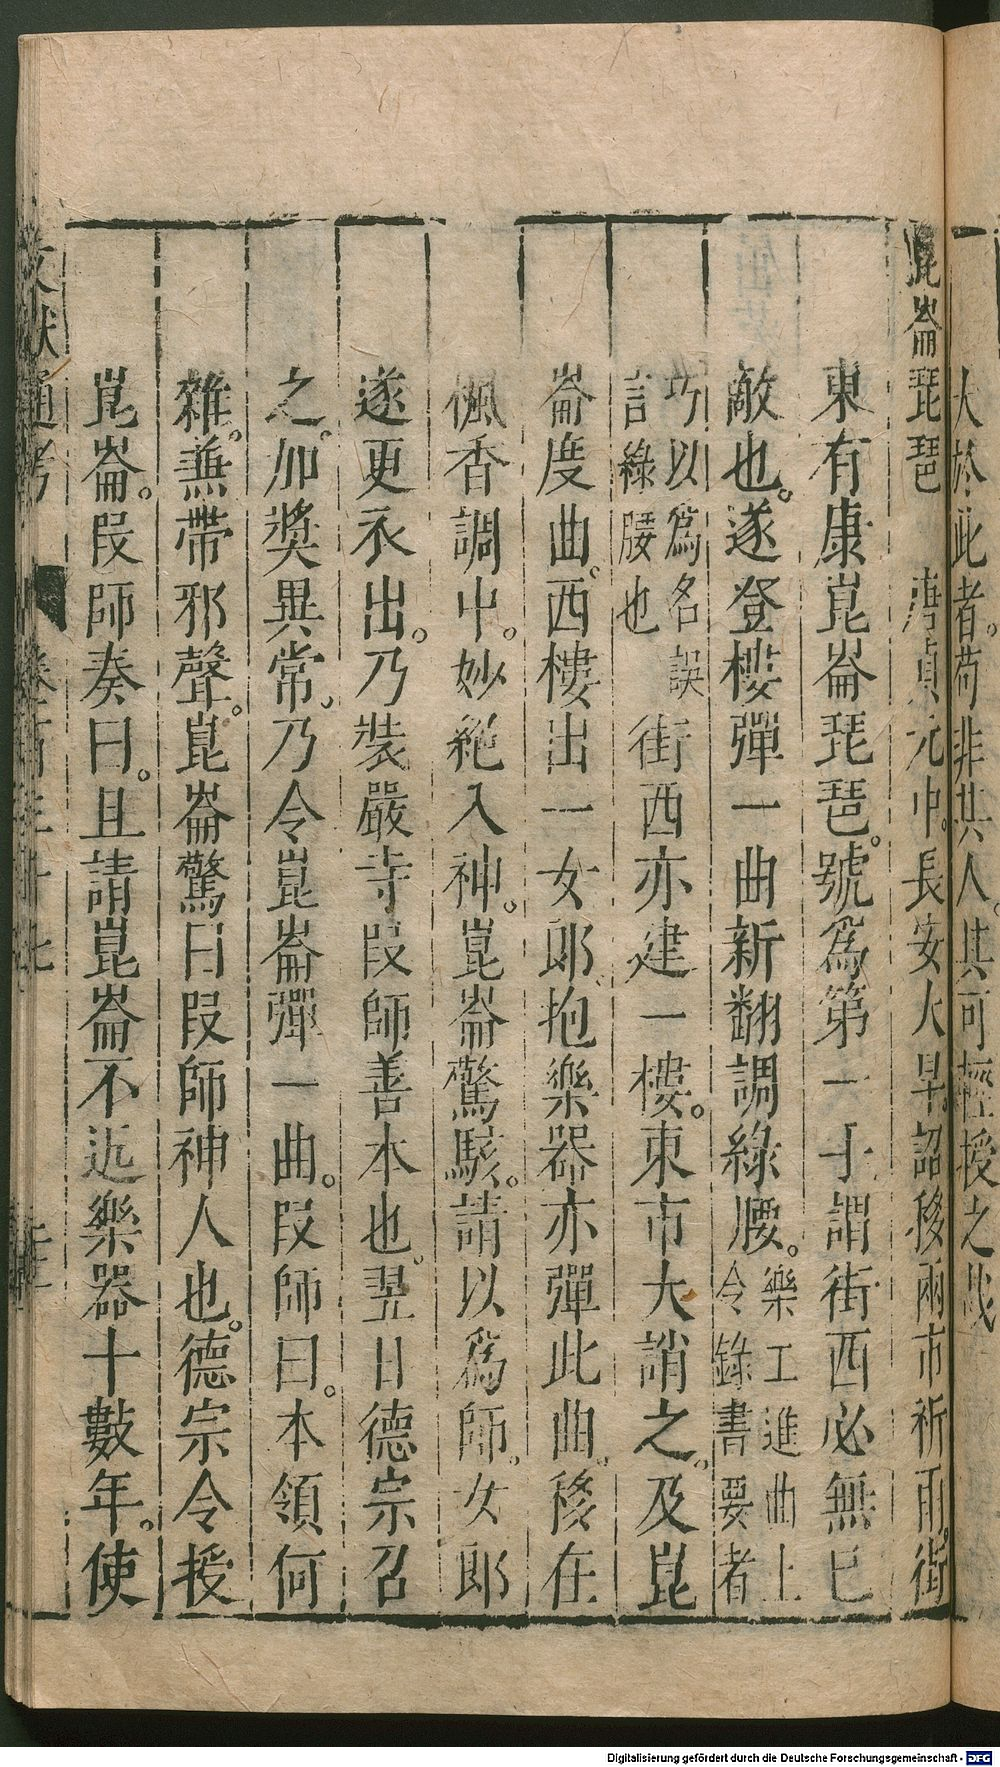 大於此者。苟非其人。其可輕授之哉
崑崙琵琶　唐貞元中。長安大旱。詔移兩市祈雨。街
東有康崑崙琵琶。號為第一手謂街西必無已
敵也。遂登樓彈一曲新翻調綠腰。樂工進曲上令錄書要者
巧以為名誤言綠腰也街西亦建一樓。東市大誚之。及崑
崙度曲。西樓出一女郎、抱樂器亦彈此曲。移在
楓香調中。妙絕入神。崑崙驚駭。請以為師。女郎
遂更衣出。乃裝嚴寺段師善本也。翌日德宗召
之。加奬異常。乃令崑崙彈一曲。段師曰。本領何
雜。兼帶邪聲。崑崙驚曰段師神人也。德宗令授
崑崙。段師奏曰。且請崑崙不近樂器十數年。使
文獻通考
Digitalisierung gefördert durch die Deutsche Forschungsgemeinschaft - DFG